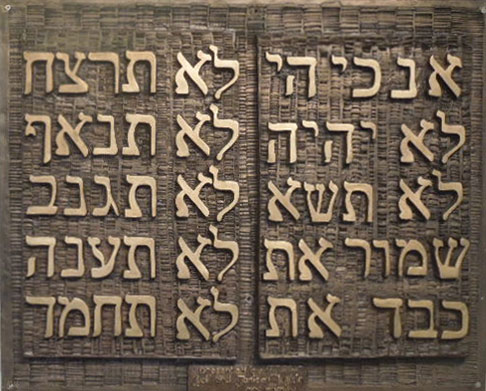 אנכי הי
לא יהיה
לא תשא
שמור את
כבד את
לא תרצח
לא תנאף
לא תגנב
לא תענה
לא תחמד